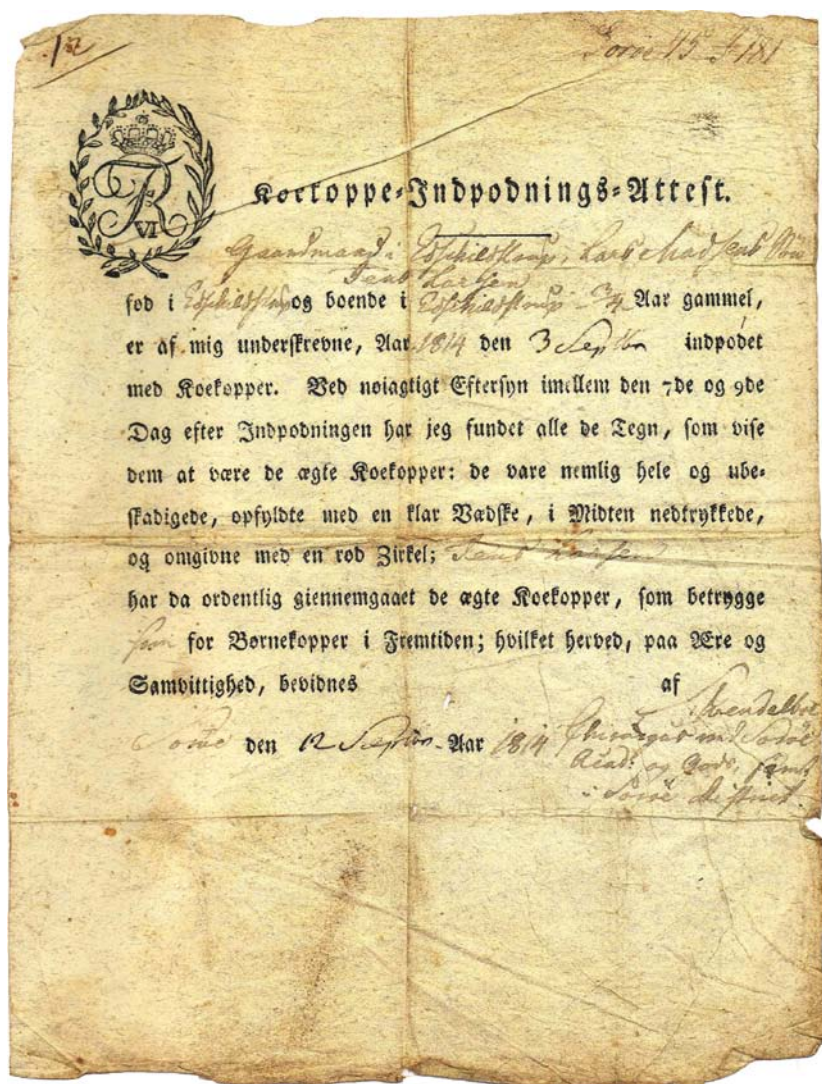 12
Soröe
FR
VI
Koekoppe-Indpodnings-Attest.
Gaardmand i Edschildstrup, Lars Madsens Sön
Jens Larsen
fød i Edschildstrup og boende i Edschildstrup 3/4 Aar gammel,
er af mig underskrevne, Aar 1814 den 3 Septbr indpodet
med Koekopper. Ved nøiagtigt Eftersyn imellem den 7de og 9de
Dag efter Indpodningen har jeg fundet alle de Tegn, som vise
dem at være de ægte Koekopper: de vare nemlig hele og ube-
skadigede, opfyldte med en klar Vædske, i Midten nedtrykkede,
og omgivne med en rød Zirkel; Jens Larsen
har da ordentlig giennemgaaet de ægte Koekopper, som betrygge
for Børnekopper i Fremtiden; hvilket herved, paa Ære og
Samvittighed, bevidnes af
Soröe den 12 Septbr. Aar 1814 Chirurgus ved Soröe
Acad: og Gods, samt
i Soröe District.